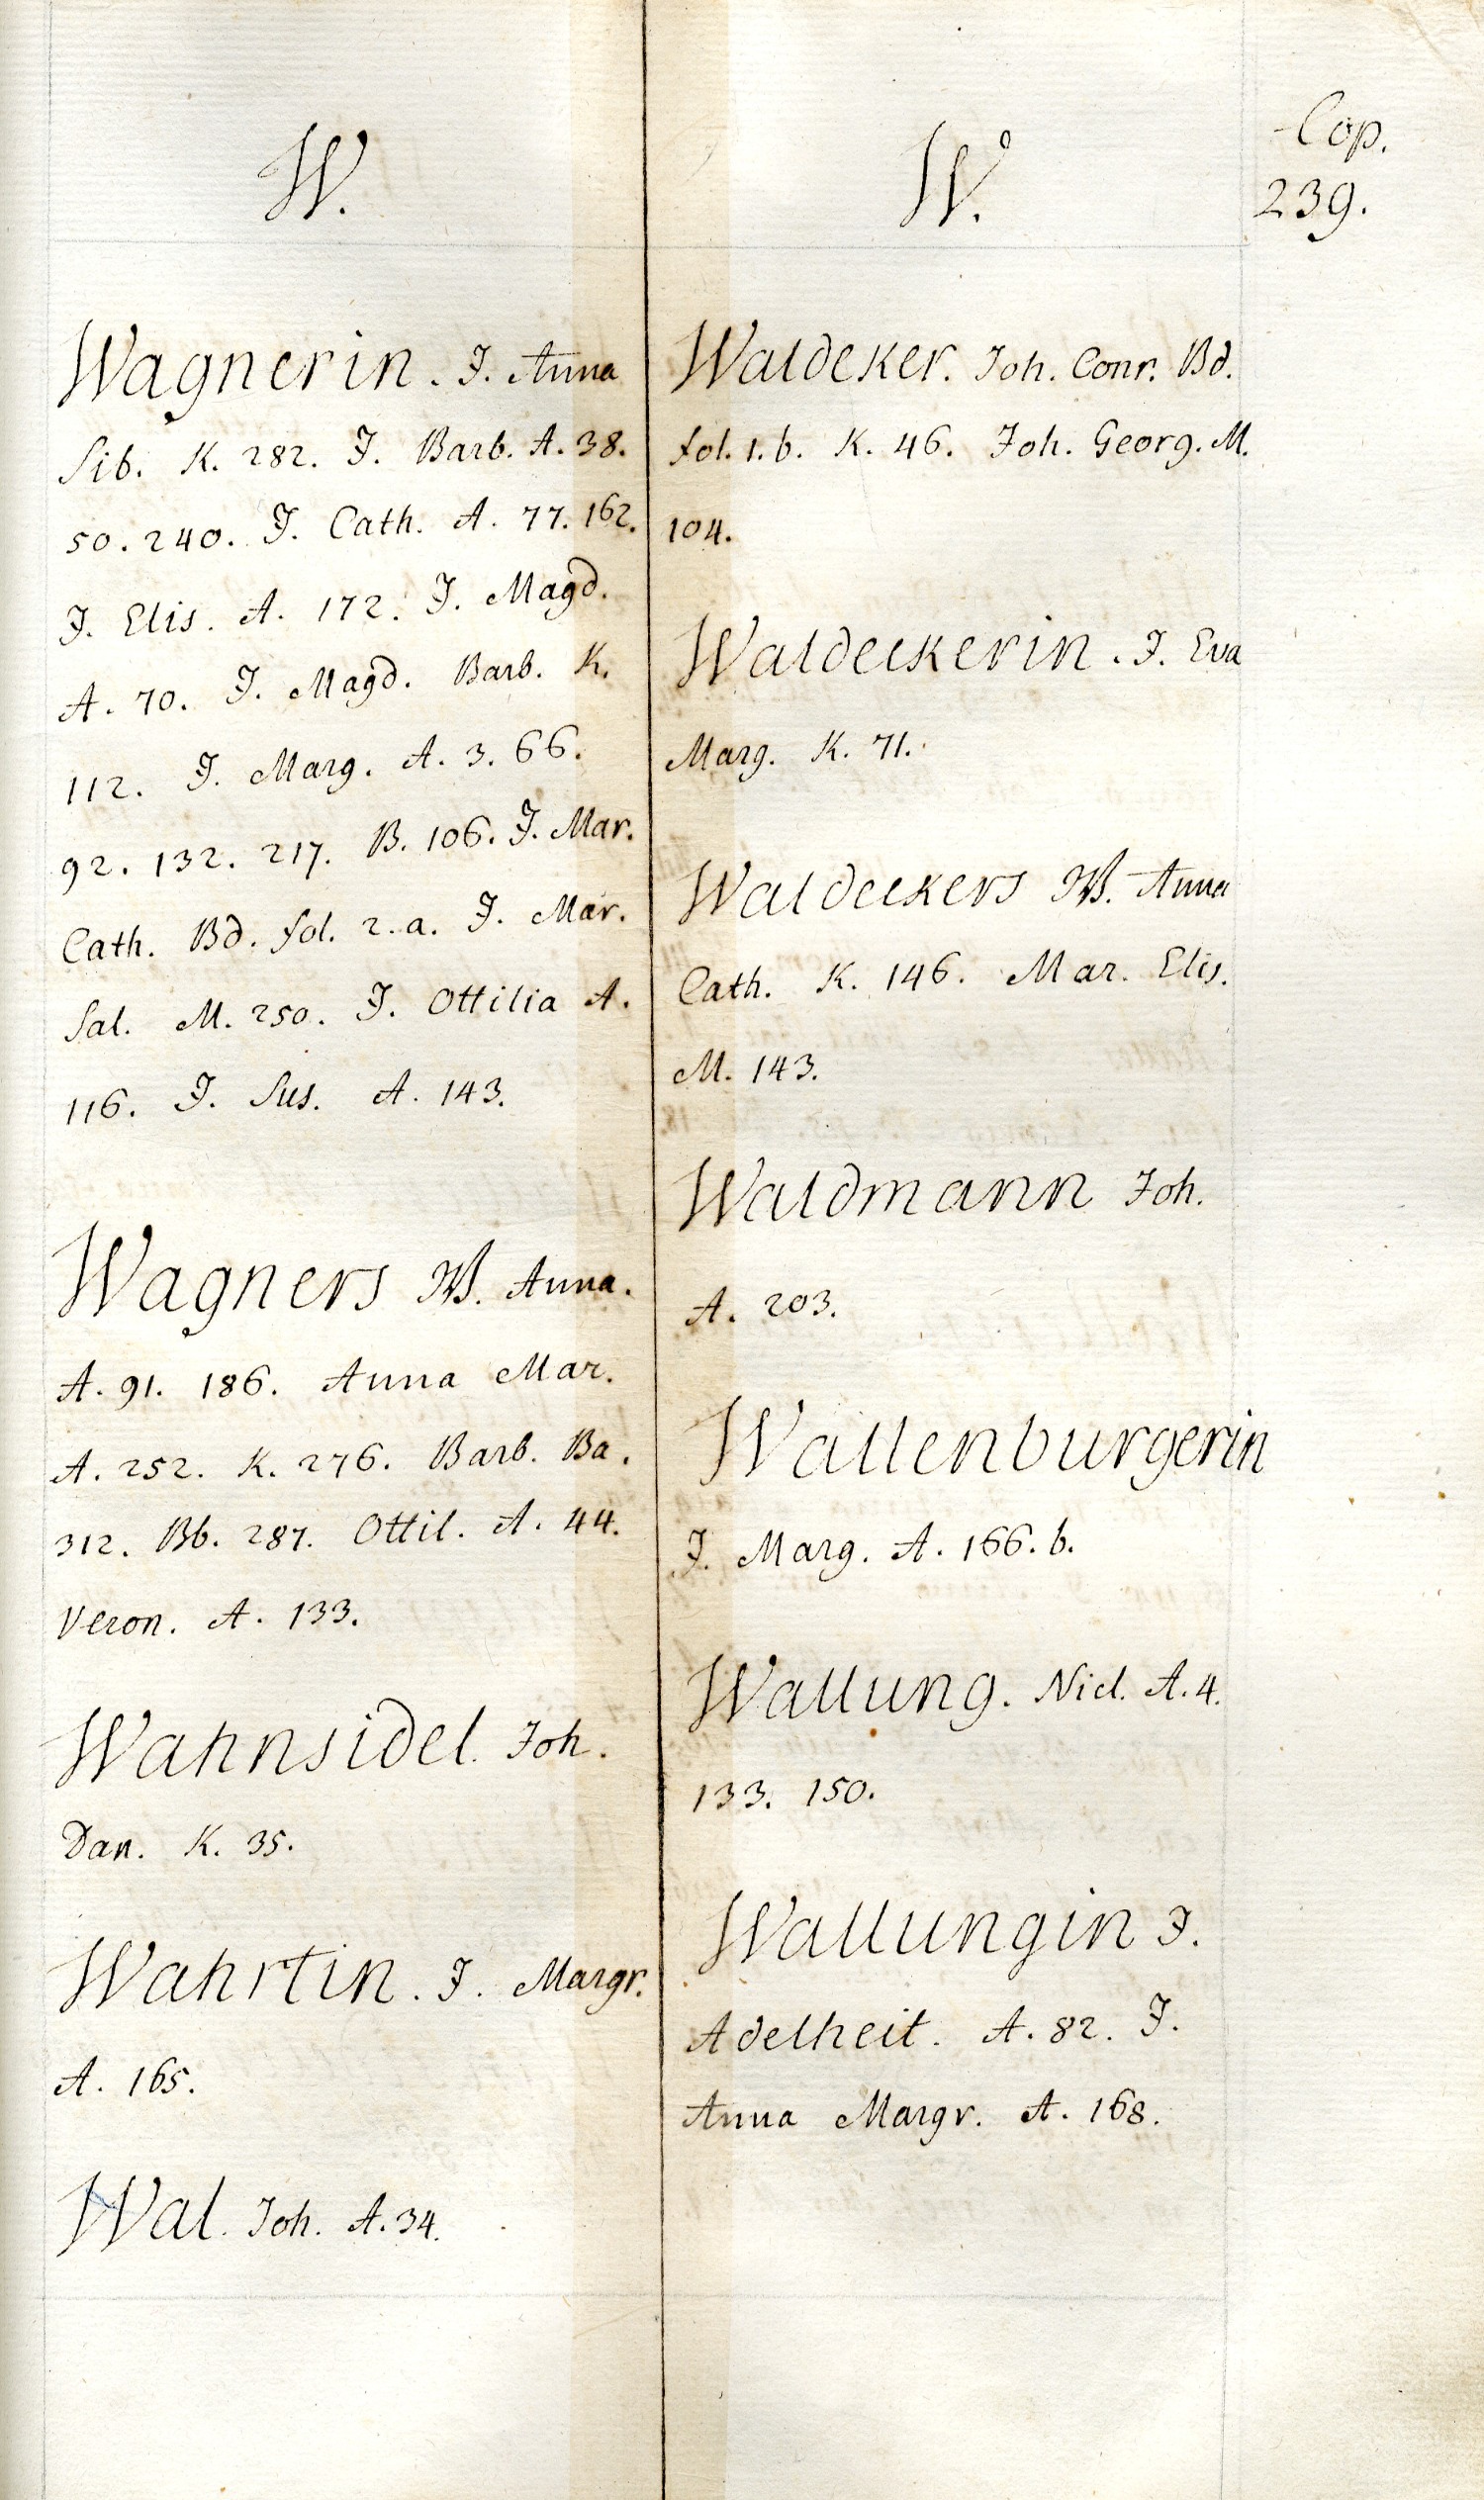 W.
Wagnerin. J. Anna
Sib. K. 282. J. Barb. A. 38.
50. 240. J. Cath. A. 77. 162.
J. Elis. A. 172. J. Magd.
A. 70. J. Magd. Barb. K.
112. J. Marg. A. 3. 66.
92. 132. 217. B. 106. J. Mar.
Cath. Bd. fol. 2. a. J. Mar.
Sal. M. 250. J. Ottilia A.
116. J. Sus. A. 143.
Wagners W. Anna.
A. 91. 186. Anna Mar.
A. 252. K. 276. Barb. Ba.
312. Bb. 287. Ottil. A. 44.
Veron. A. 133.
Wahnsidel. Joh.
Dan. K. 35.
Wahrtin. J. Margr.
A. 165.
Wal. Joh. A. 34.
W.
Waldeker. Joh. Conr. Bd.
fol. 1. b. K. 46. Joh. Georg. M.
104.
Waldeckerin. J. Eva
Marg. K. 71.
Waldeckers W. Anna
Cath. K. 146. Mar. Elis.
M. 143.
Waldmann Joh.
A. 203.
Wallenburgerin
J. Marg. A. 166. b.
Wallung. Nicl. A. 4.
133. 150.
Wallungin J.
Adelheit. A. 82. J.
Anna Margr. A. 168.
Cop.
239.